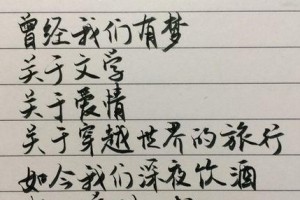 曾经我们有梦
关于文学
关于爱情
关于穿越世界的旅行
如今我们深夜饮酒